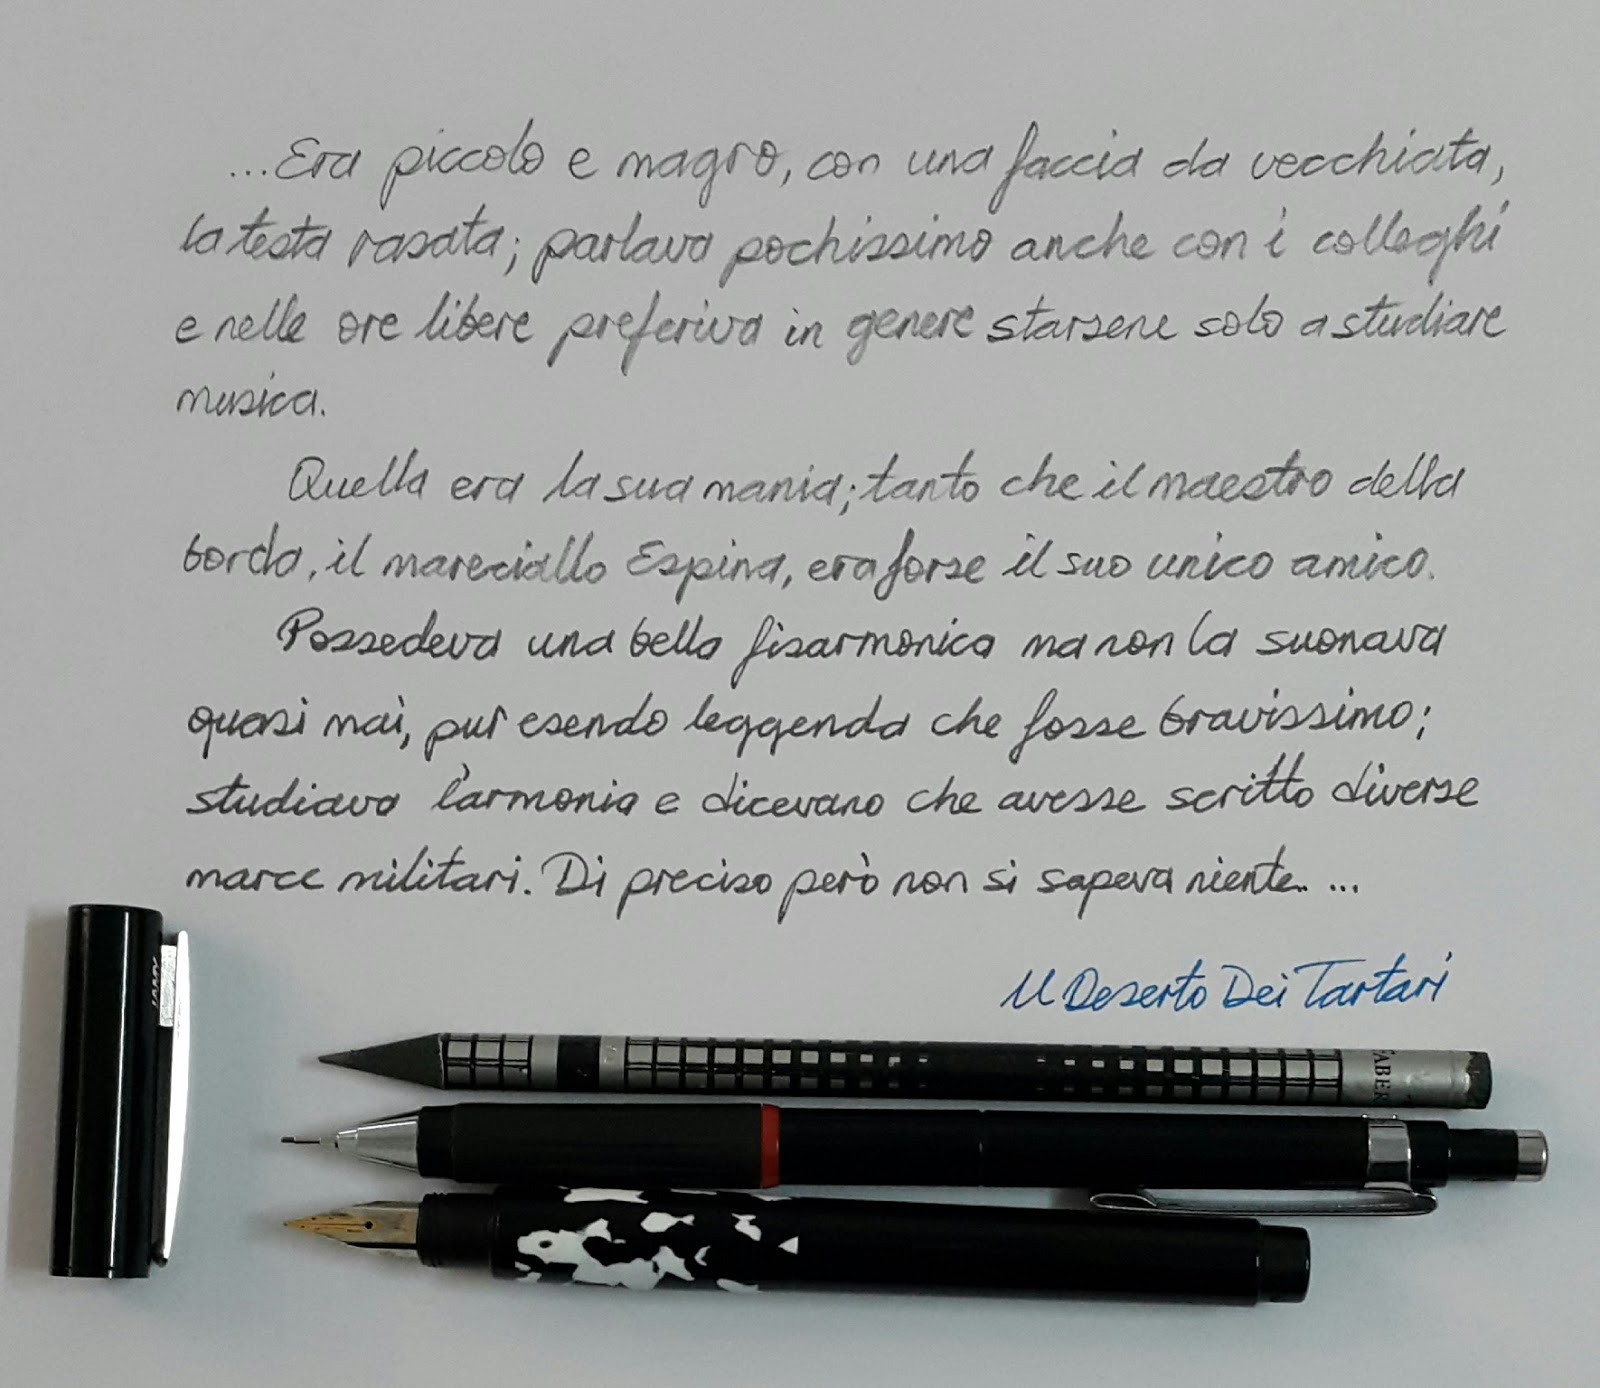 ...Era piccolo e magro, con una faccia da vecchiata,
la testa rasata; parlava pochissimo anche con i colleghi
e nelle ore libere preferiva in genere starsene solo a studiare
musica.
Quella era la sua mania; tanto che il maestro della
borda, il maresciallo Espina, era forse il suo unico amico.
Possedeva una bella fisarmonica ma non la suonava
quasi mai, pur esendo leggenda che fosse bravissimo;
studiava l'armonia e dicevano che avesse scritto diverse
marce militari. Di preciso però non si sapeva niente.. ...
Il Deserto Dei Tartari
LAMY
FABER